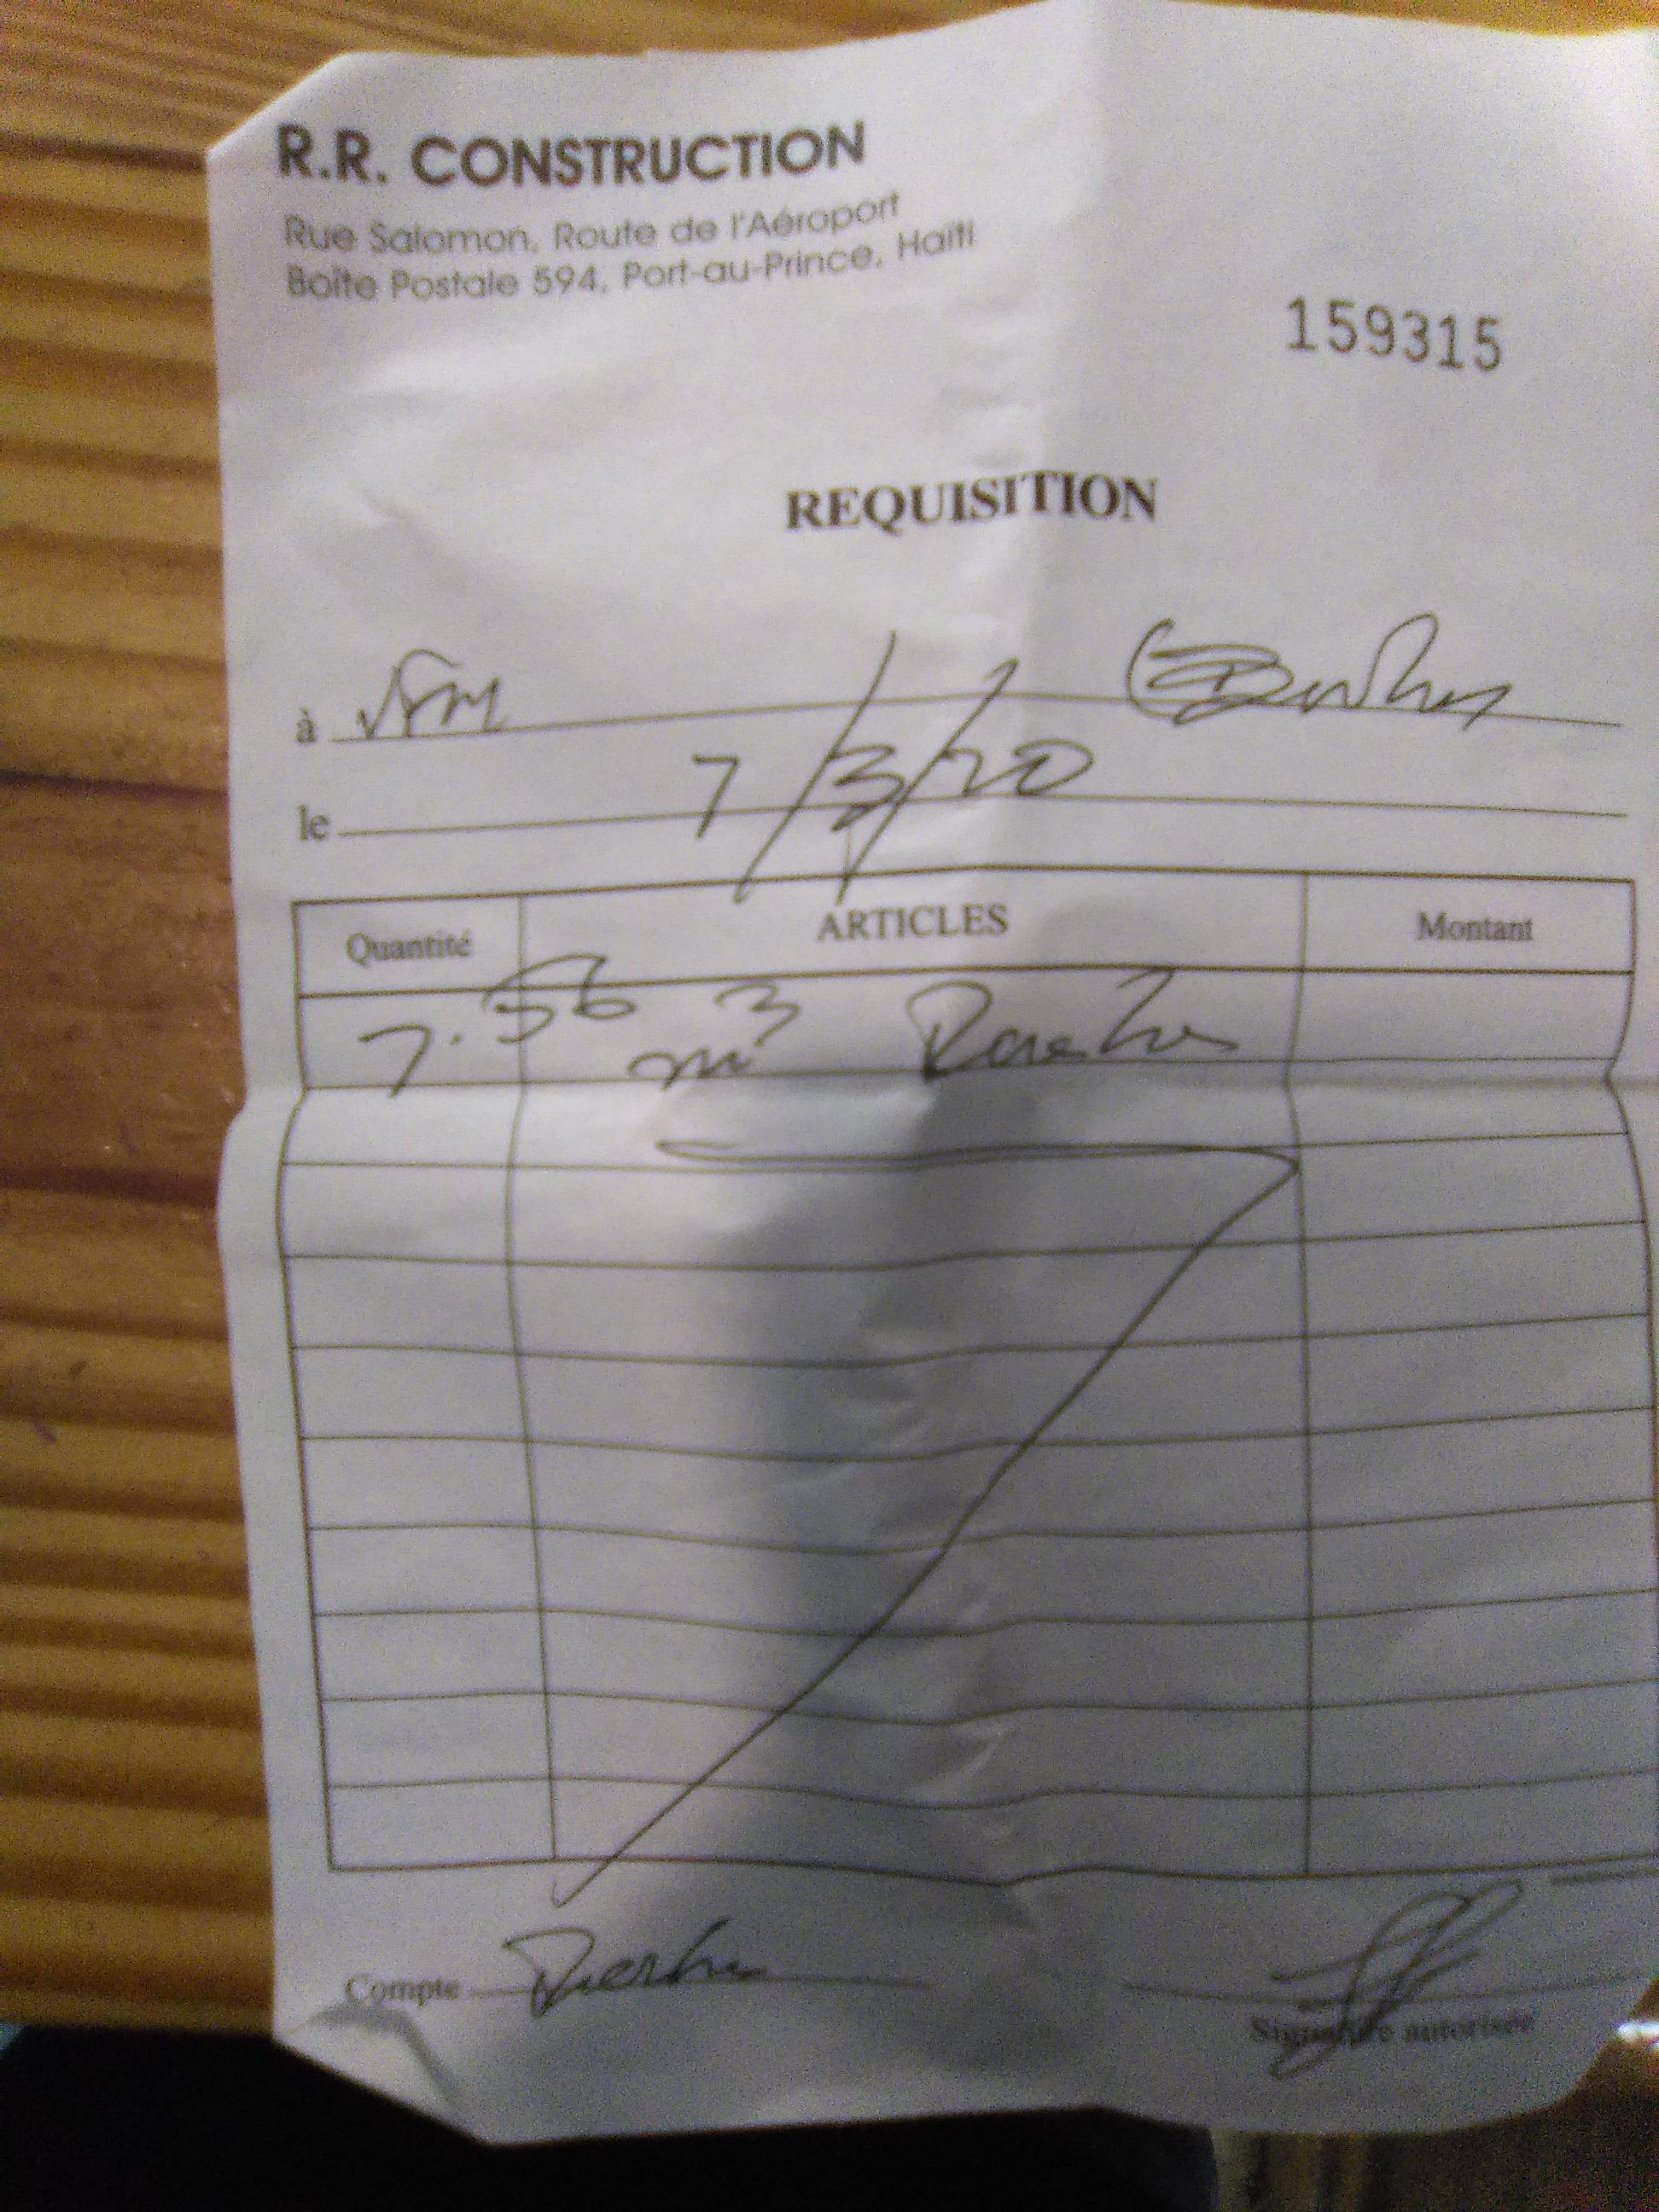 R.R. CONSTRUCTION
Rue Salomon, Route de l'Aéroport
Boîte Postale 594, Port-au-Prince, Haïti
159315
REQUISITION
à
le 7/3/20
Quantité ARTICLES Montant
7.56 m3
Compte
Signature autorisée